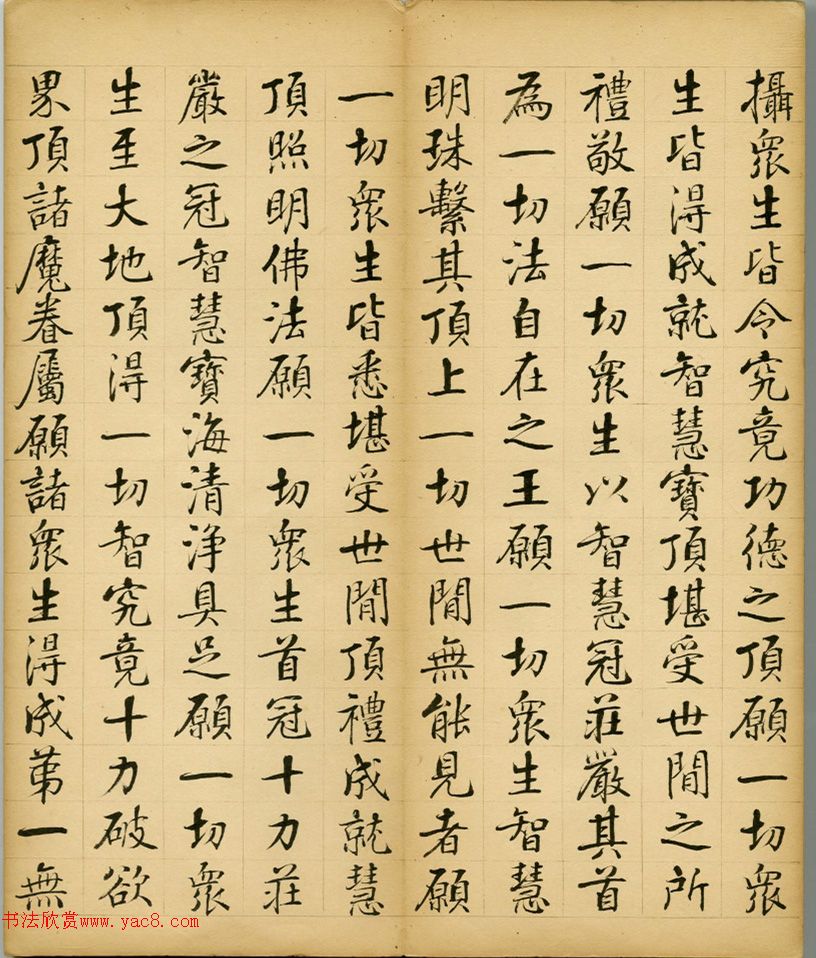 攝衆生皆令究竟功德之頂願一切衆
生皆得成就智慧寶頂堪受世間之所
禮敬願一切衆生以智慧冠莊嚴其首
為一切法自在之王願一切衆生智慧
明珠繫其頂上一切世間無能見者願
一切衆生皆悉堪受世間頂禮成就慧
頂照明佛法願一切衆生首冠十力莊
嚴之冠智慧寶海清淨具足願一切衆
生至大地頂得一切智究竟十力破欲
界頂諸魔眷屬願諸衆生得成第一無
书法欣赏www.yac8.com